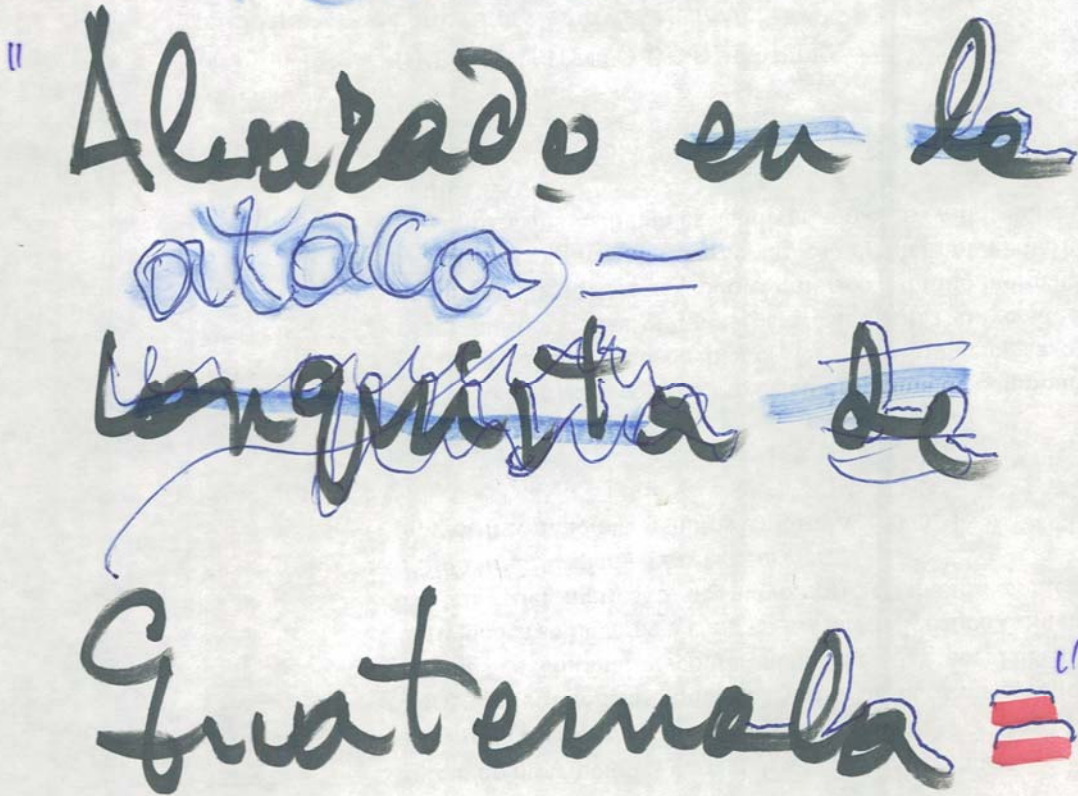 "Alvarado en la
ataca =
conquista de
Guatemala ="